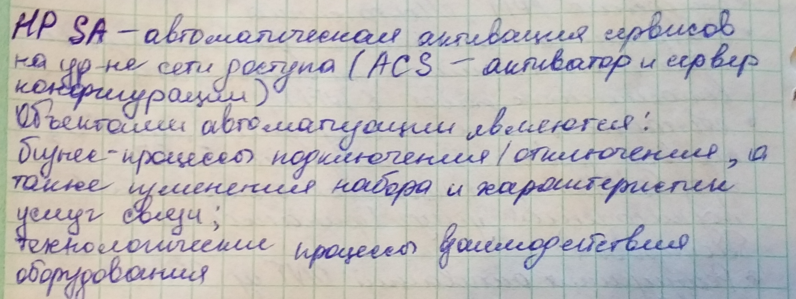 HP SA – автоматическая активация сервисов
на ур-не сети доступа (ACS – активатор и сервер
конфигурации)
Объектами автоматизации являются:
бизнес-процессы подключения/отключения, а
также изменения набора и характеристик
услуг связи;
технологические процессы взаимодействия
оборудования